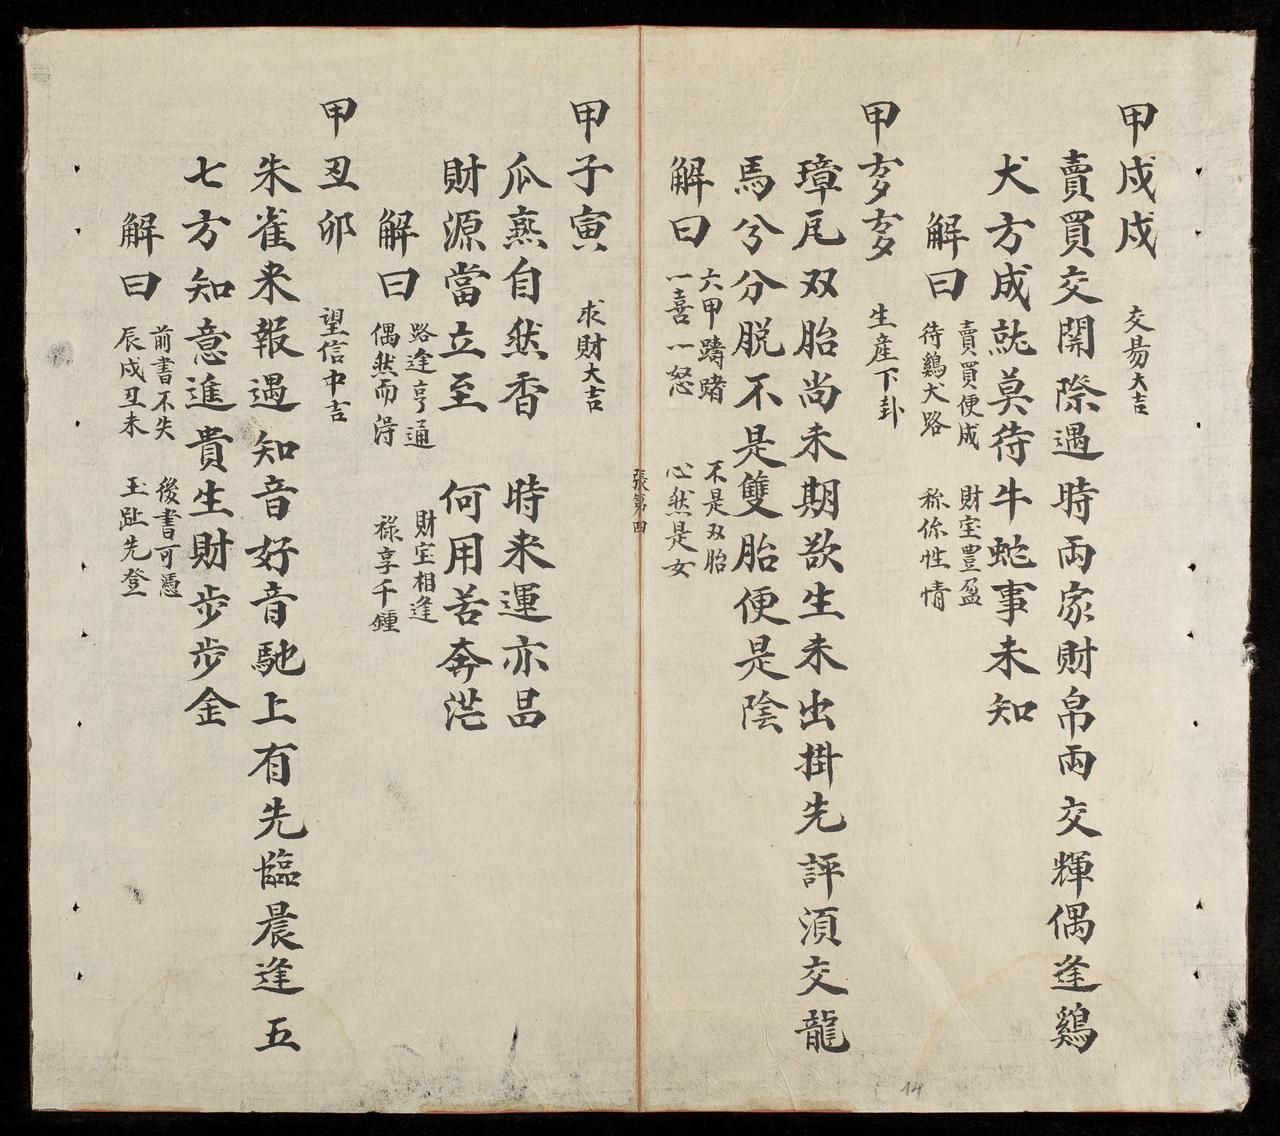 甲戌戌 交易大吉
賣買交關際遇時兩家財帛兩交輝偶逢鷄
犬方成就莫待牛蛇事未知
解曰 賣買便成 財宝豊盈
待鷄犬路 称你性情
甲亥亥 生産下卦
璋瓦双胎尚未期欲生未出掛先評湏交龍
馬兮分脱不是雙胎便是陰
解曰 六甲躊躇 不是双胎
一喜一怒 心然是女
張第四
甲子寅 求財大吉
瓜熟自然香 時来運亦昌
財源當立至 何用苦奔茫
解曰 路逢亨通 財宝相逢
偶然而淂 祿享千鍾
甲丑卯 望信中吉
朱雀来報遇知音好音馳上有先臨晨逢五
七方知意進貴生財步步金
解曰 前書不失 後書可憑
辰戌丑未 玉趾先登
14